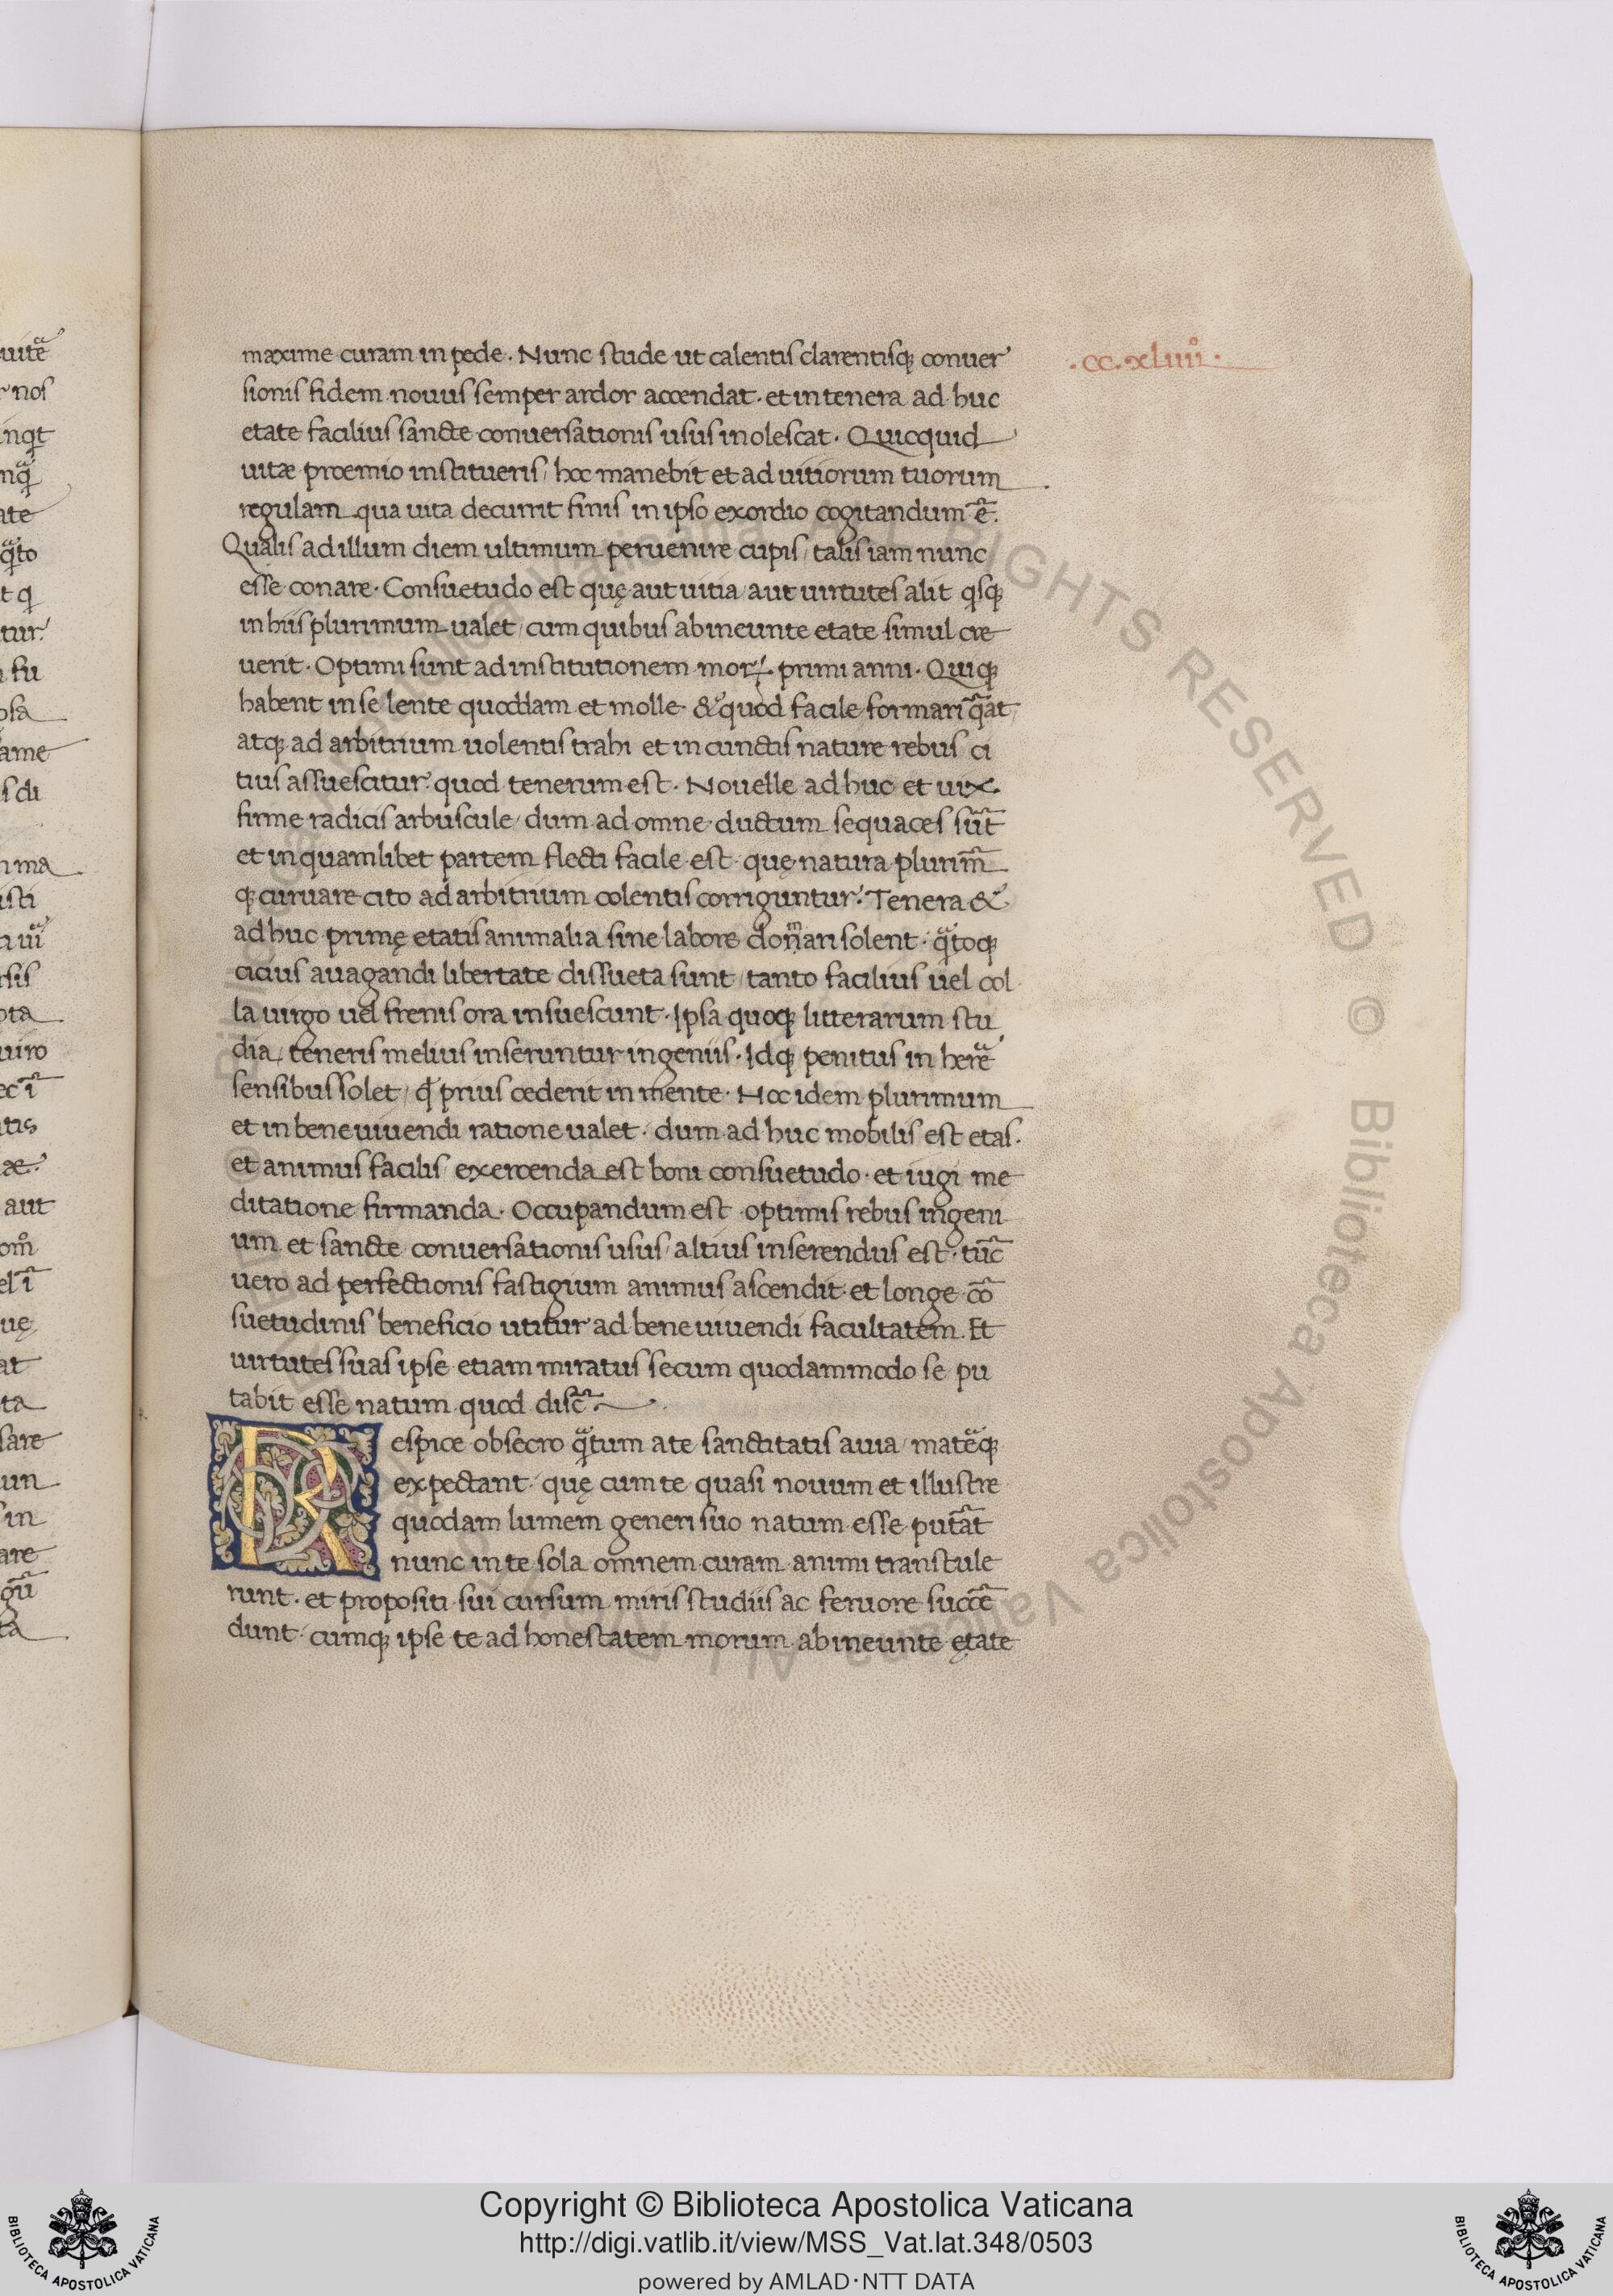 maxime curam in pede. Nunc stude ut calentis clarentisq; conuer
.cc.xliiii.
sionis fidem nouus semper ardor accendat. et in tenera ad huc
etate facilius sancte conuersationis usus inolescat. Quicquid
uitæ proemio institueris/ hoc manebit et ad uitiorum tuorum
regulam qua uita decurrit finis in ipso exordio cogitandum ē.
Qualis ad illum diem ultimum peruenire cupis/ talis iam nunc
esse conare. Consuetudo est quę aut uitia/ aut uirtutes alit qsq;
in hiis plurimum ualet/ cum quibus ab ineunte etate simul cre
uerit. Optimi sunt ad institutionem moꝝ. primi anni. Quiq;
habent in se lente quoddam et molle. & quod facile formari q̃at
atq; ad arbitrium uolentis trahi et in cunctis nature rebus ci
tius assuescitur. quod tenerum est. Nouelle ad huc et uix
firme radicis arbuscule/ dum ad omne ductum sequaces sũt
et in quamlibet partem flecti facile est. quę natura plurim̃
q; curuare cito ad arbitrium colentis corriguntur. Tenera &
ad huc primę etatis animalia sine labore don̄ari solent. q̃toq;
cicius auagandi libertate dissueta sunt/ tanto facilius uel col
la uirgo uel frenis ora insuescunt. Ipsa quoq; litterarum stu
dia/ teneris melius inseruntur ingeniis. Idq; penitus in herẽ
sensibus solet/ qđ prius cederit in mente. Hoc idem plurimum
et in bene uiuendi ratione ualet. dum ad huc mobilis est etas.
et animus facilis/ exercenda est boni consuetudo. et iugi me
ditatione firmanda. Occupandum est optimis rebus ingeni
um et sancte conuersationis usus/ altius inserendus est. tũc
uero ad perfectionis fastigium animus ascendit. et longe cõ
suetudinis beneficio utitur ad bene uiuendi facultatem. Et
uirtutes suas ipse etiam miratus secum quodammodo se pu
tabit esse natum quod disc̃.
Respice obsecro q̃tum ate sanctitatis auia/ matẽq;
expectant. quę cum te quasi nouum et illustre
quodam lumem generi suo natum esse put̃at
nunc in te sola omnem curam animi transtule
runt. et propositi sui cursum miris studiis ac feruore succẽ
dunt. cumq; ipse te ad honestatem morum ab ineunte ętate
Copyright © Biblioteca Apostolica Vaticana
http://digi.vatlib.it/view/MSS_Vat.lat.348/0503
powered by AMLAD·NTT DATA
BIBLIOTECA APOSTOLICA VATICANA
BIBLIOTECA APOSTOLICA VATICANA